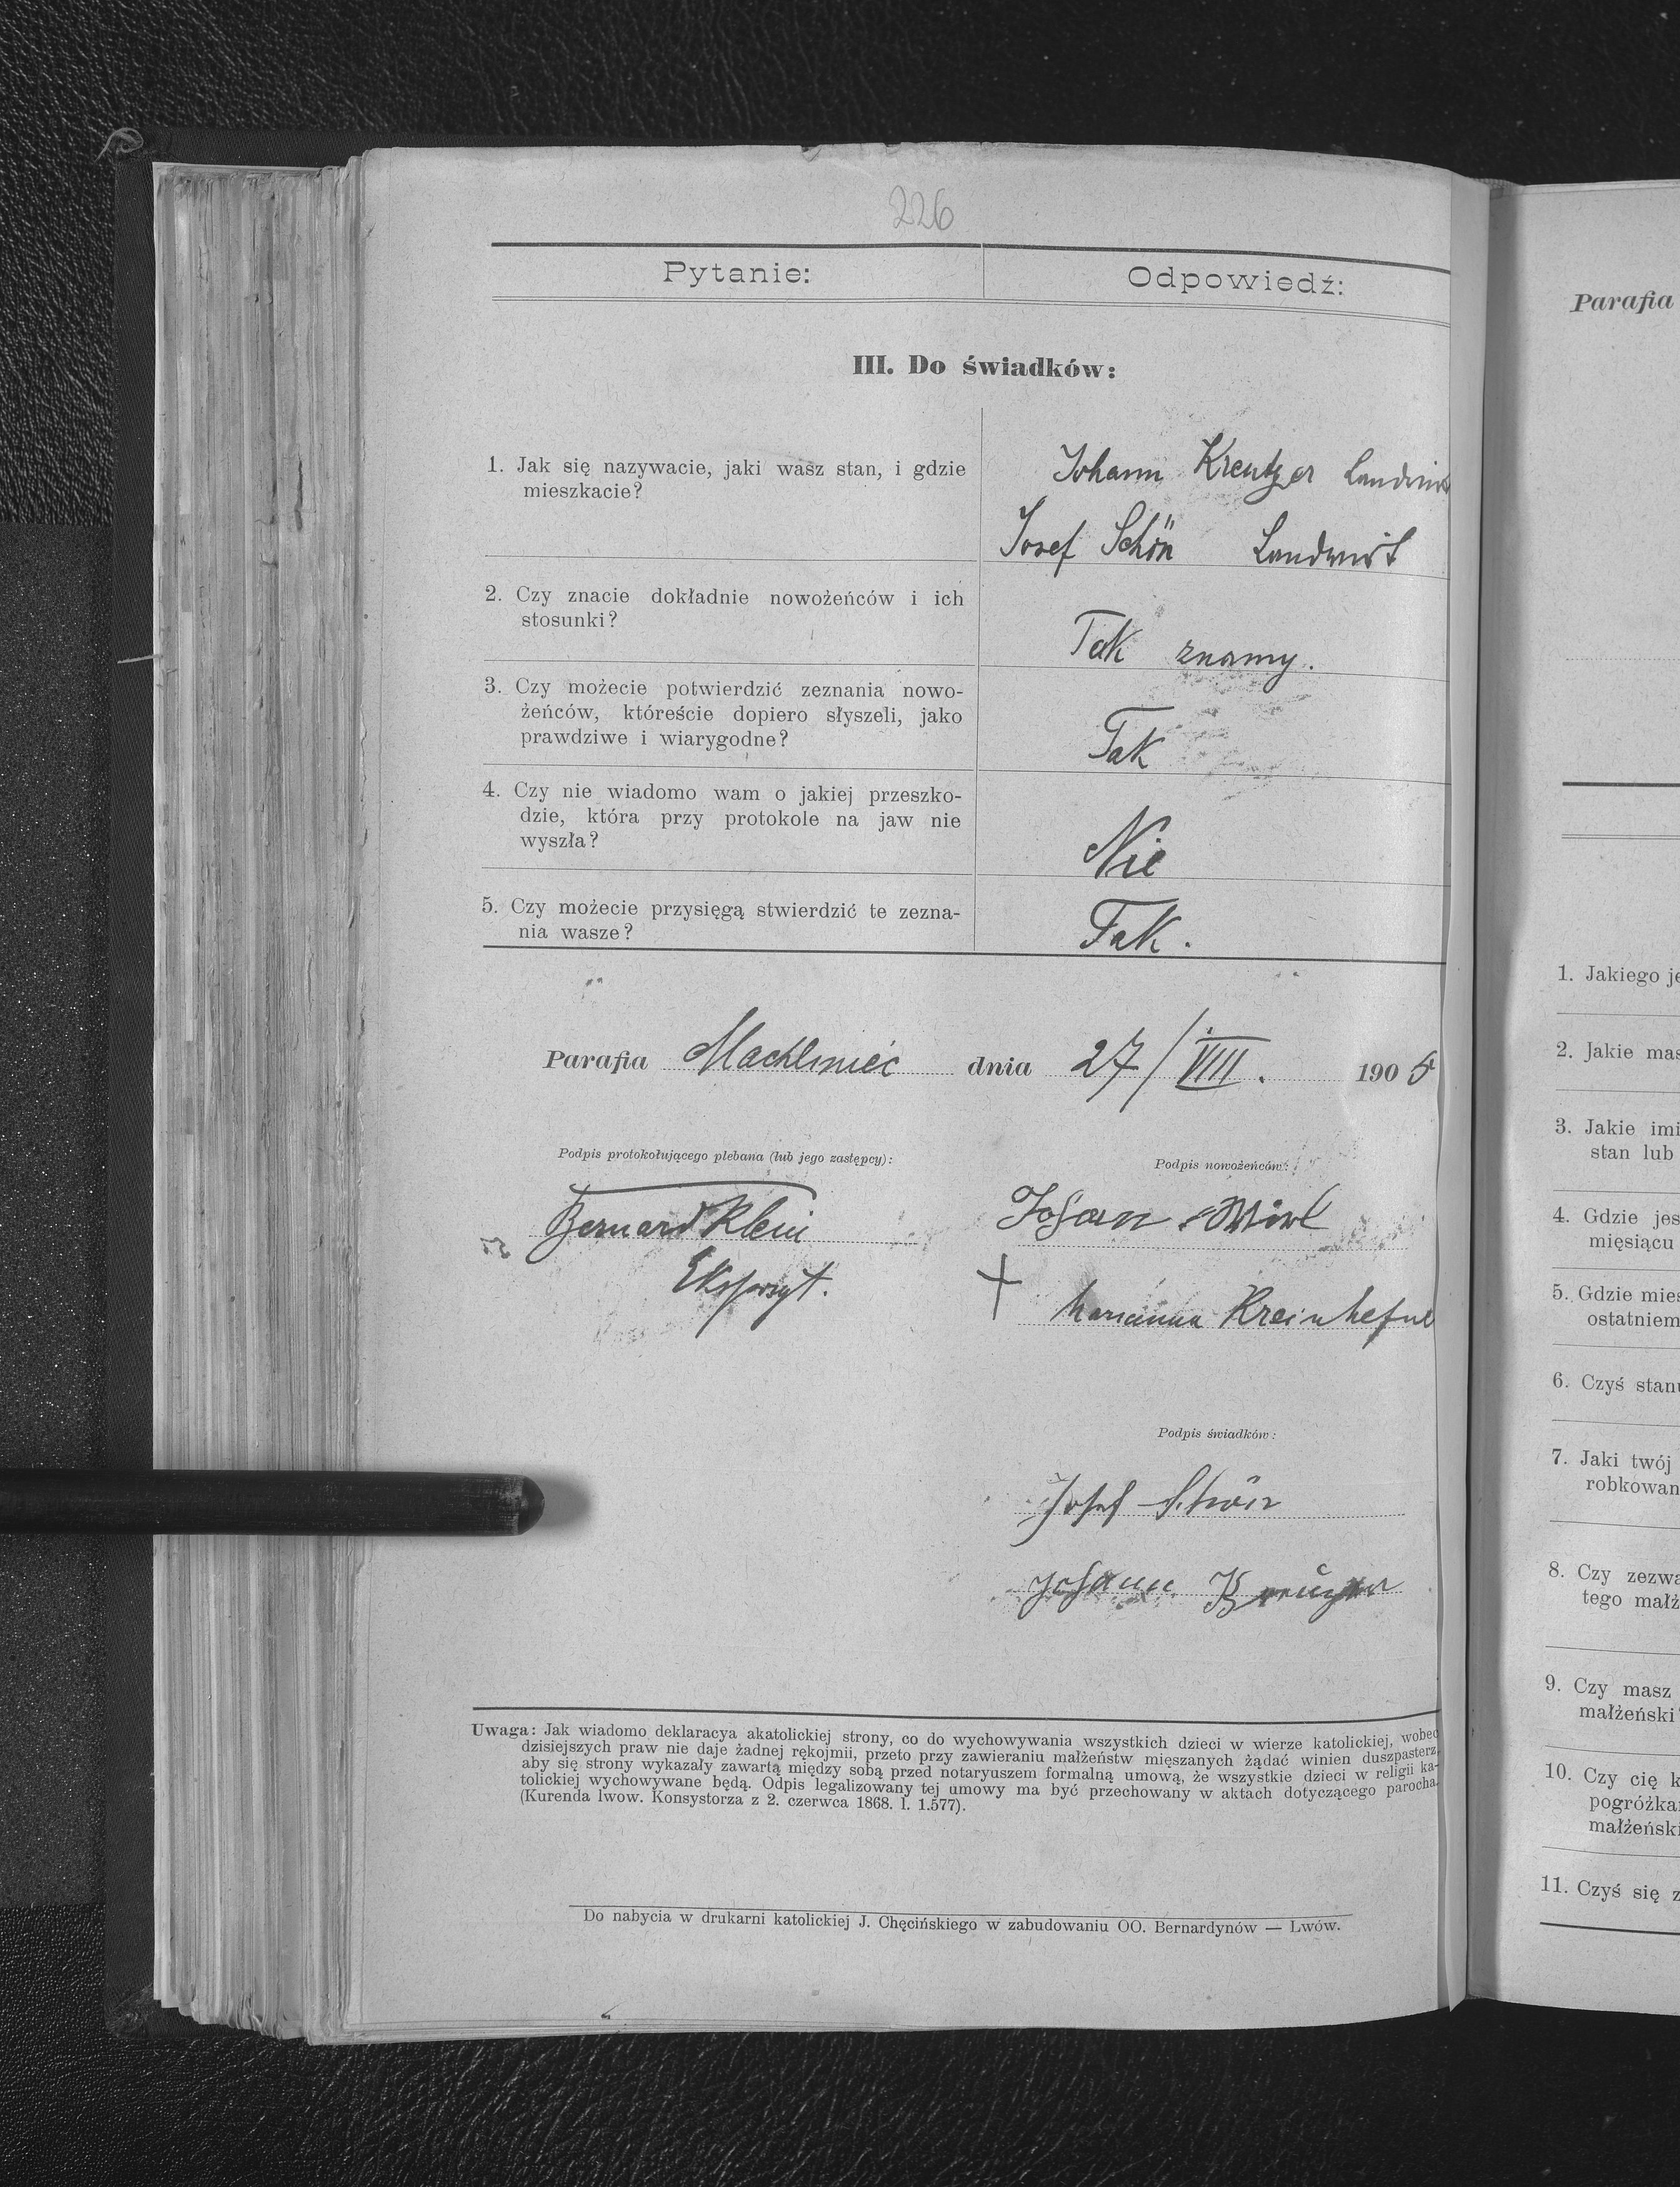 226
Pytanie:
Odpowiedź:
III. Do świadków:
1. Jak się nazywacie, jaki wasz stan, i gdzie
mieszkacie?
Johann Kreutzer Landwirt
Josef Schön Landwirt
2. Czy znacie dokładnie nowożeńców i ich
stosunki?
Tak znamy.
3. Czy możecie potwierdzić zeznania nowo-
żeńców, któreście dopiero słyszeli, jako
prawdziwe i wiarygodne?
Tak
4. Czy nie wiadomo wam o jakiej przeszko-
dzie, która przy protokole na jaw nie
wyszła?
Nie
5. Czy możecie przysięgą stwierdzić te zezna-
nia wasze?
Tak.
Parafia Machliniec dnia 27/VIII. 1905
Podpis protokołującego plebana (lub jego zastępcy):
Bernard Klein
Ekspozyt.
Podpis nowożeńców:
Johann
Marianna
Podpis świadków:
Josef Schön
Johann
Uwaga: Jak wiadomo deklaracya akatolickiej strony, co do wychowywania wszystkich dzieci w wierze katolickiej, wobec
dzisiejszych praw nie daje żadnej rękojmii, przeto przy zawieraniu małżeństw mięszanych żądać winien duszpasterz,
aby się strony wykazały zawartą między sobą przed notaryuszem formalną umową, że wszystkie dzieci w religii ka-
tolickiej wychowywane będą. Odpis legalizowany tej umowy ma być przechowany w aktach dotyczącego parocha.
(Kurenda lwow. Konsystorza z 2. czerwca 1868. l. 1.577).
Do nabycia w drukarni katolickiej J. Chęcińskiego w zabudowaniu OO. Bernardynów — Lwów.
Parafia
1. Jakiego je
2. Jakie mas
3. Jakie imi
stan lub
4. Gdzie jes
mięsiącu
5. Gdzie mies
ostatniem
6. Czyś stanu
7. Jaki twój
robkowan
8. Czy zezwa
tego małż
9. Czy masz
małżeński
10. Czy cię k
pogróżka
małżeńsk
11. Czyś się z